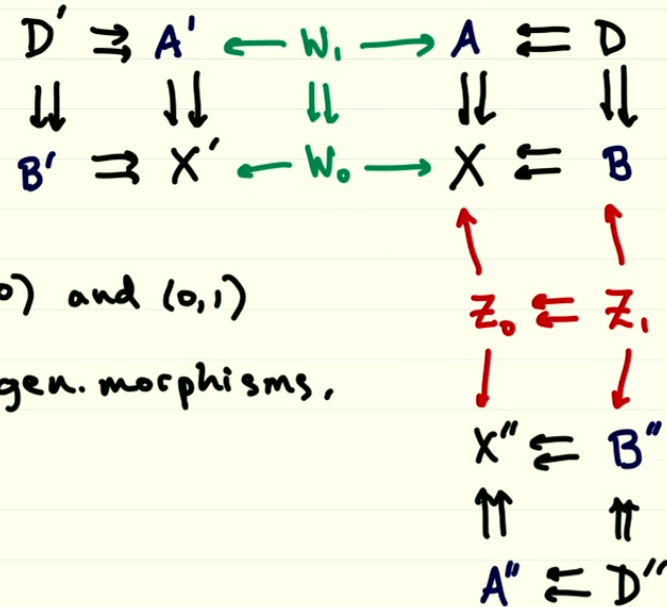 D′ ⇉ A′ ← W₁ → A ⇇ D
⇊ ⇊ ⇊ ⇊ ⇊
B′ ⇉ X′ ← W₀ → X ⇇ B
↑ ↑
0) and (0,1) Z₀ ⇇ Z₁
gen. morphisms, ↓ ↓
X″ ⇇ B″
⇈ ⇈
A″ ⇇ D″